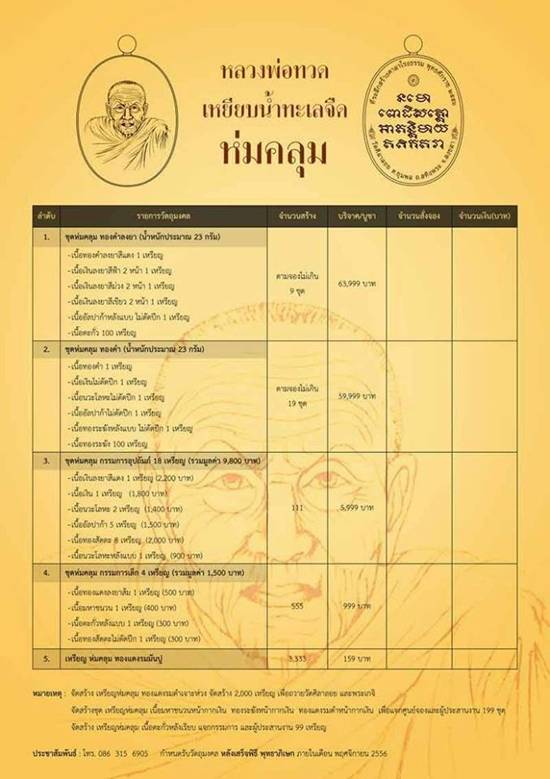 หลวงพ่อทวด
เหยียบน้ำทะเลจืด
ห่มคลุม
นโม
ลำดับ รายการวัตถุมงคล จำนวนสร้าง บริจาค/บูชา จำนวนสั่งจอง จำนวนเงิน(บาท)
1. ชุดห่มคลุม ทองคำลงยา (น้ำหนักประมาณ 23 กรัม)
-เนื้อทองคำลงยาสีแดง 1 เหรียญ
-เนื้อเงินลงยาสีฟ้า 2 หน้า 1 เหรียญ
-เนื้อเงินลงยาสีม่วง 2 หน้า 1 เหรียญ
-เนื้อเงินลงยาสีเขียว 2 หน้า 1 เหรียญ
-เนื้ออัลปาก้าหลังแบบ ไม่ตัดปีก 1 เหรียญ
-เนื้อตะกั่ว 100 เหรียญ
ตามจองไม่เกิน
9 ชุด
63,999 บาท
2. ชุดห่มคลุม ทองคำ (น้ำหนักประมาณ 23 กรัม)
-เนื้อทองคำ 1 เหรียญ
-เนื้อเงินไม่ตัดปีก 1 เหรียญ
-เนื้อนวะโลหะไม่ตัดปีก 1 เหรียญ
-เนื้ออัลปาก้าไม่ตัดปีก 1 เหรียญ
-เนื้อทองระฆังหลังแบบ ไม่ตัดปีก 1 เหรียญ
-เนื้อทองระฆัง 100 เหรียญ
ตามจองไม่เกิน
19 ชุด
59,999 บาท
3. ชุดห่มคลุม กรรมการอุปถัมภ์ 18 เหรียญ (รวมมูลค่า 9,800 บาท)
-เนื้อเงินลงยาสีแดง 1 เหรียญ (2,200 บาท)
-เนื้อเงิน 1 เหรียญ (1,800 บาท)
-เนื้อนวะโลหะ 2 เหรียญ (1,400 บาท)
-เนื้ออัลปาก้า 5 เหรียญ (1,500 บาท)
-เนื้อทองสัตตะ 8 เหรียญ (2,000 บาท)
-เนื้อนวะโลหะหลังแบบ 1 เหรียญ (900 บาท)
111
5,999 บาท
4. ชุดห่มคลุม กรรมการเล็ก 4 เหรียญ (รวมมูลค่า 1,500 บาท)
-เนื้อทองแดงลงยาส้ม 1 เหรียญ (500 บาท)
-เนื้อมหาชนวน 1 เหรียญ (400 บาท)
-เนื้อตะกั่วหลังแบบ 1 เหรียญ (300 บาท)
-เนื้อทองสัตตะไม่ตัดปีก 1 เหรียญ (300 บาท)
555
999 บาท
5. เหรียญ ห่มคลุม ทองแดงรมมันปู 3,333 159 บาท
หมายเหตุ : จัดสร้าง เหรียญห่มคลุม ทองแดงรมดำเจาะห่วง จัดสร้าง 2,000 เหรียญ เพื่อถวายวัดศิลาลอย และพระเกจิ
จัดสร้างชุด เหรียญห่มคลุม เนื้อมหาชนวนหน้ากากเงิน ทองระฆังหน้ากากเงิน ทองแดงรมดำหน้ากากเงิน เพื่อแจกศูนย์จองและผู้ประสานงาน 199 ชุด
จัดสร้าง เหรียญห่มคลุม เนื้อตะกั่วหลังเรียบ แจกกรรมการ และผู้ประสานงาน 99 เหรียญ
ประชาสัมพันธ์ : โทร. 086 315 6905 กำหนดรับวัตถุมงคล หลังเสร็จพิธี พุทธาภิเษก ภายในเดือน พฤศจิกายน 2556